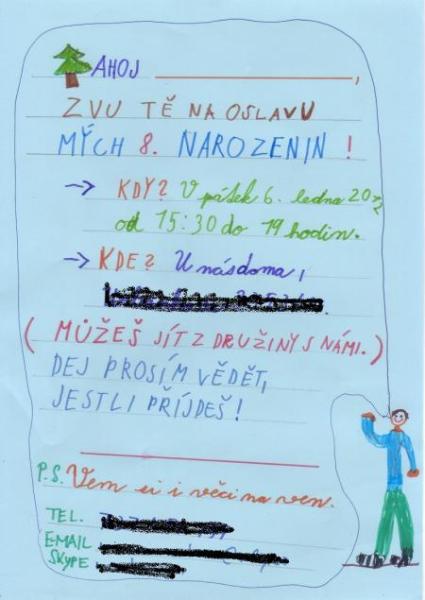 AHOJ ,
ZVU TĚ NA OSLAVU
MÝCH 8. NAROZENIN !
→ KDY? V pátek 6. ledna
od 15:30 do 19 hodin.
→ KDE? U nás doma,
( MŮŽEŠ JÍT Z DRUŽINY S NÁMI. )
DEJ PROSÍM VĚDĚT,
JESTLI PŘÍJDEŠ!
P.S. Vem si i věci na ven.
TEL.
EMAIL
SKYPE